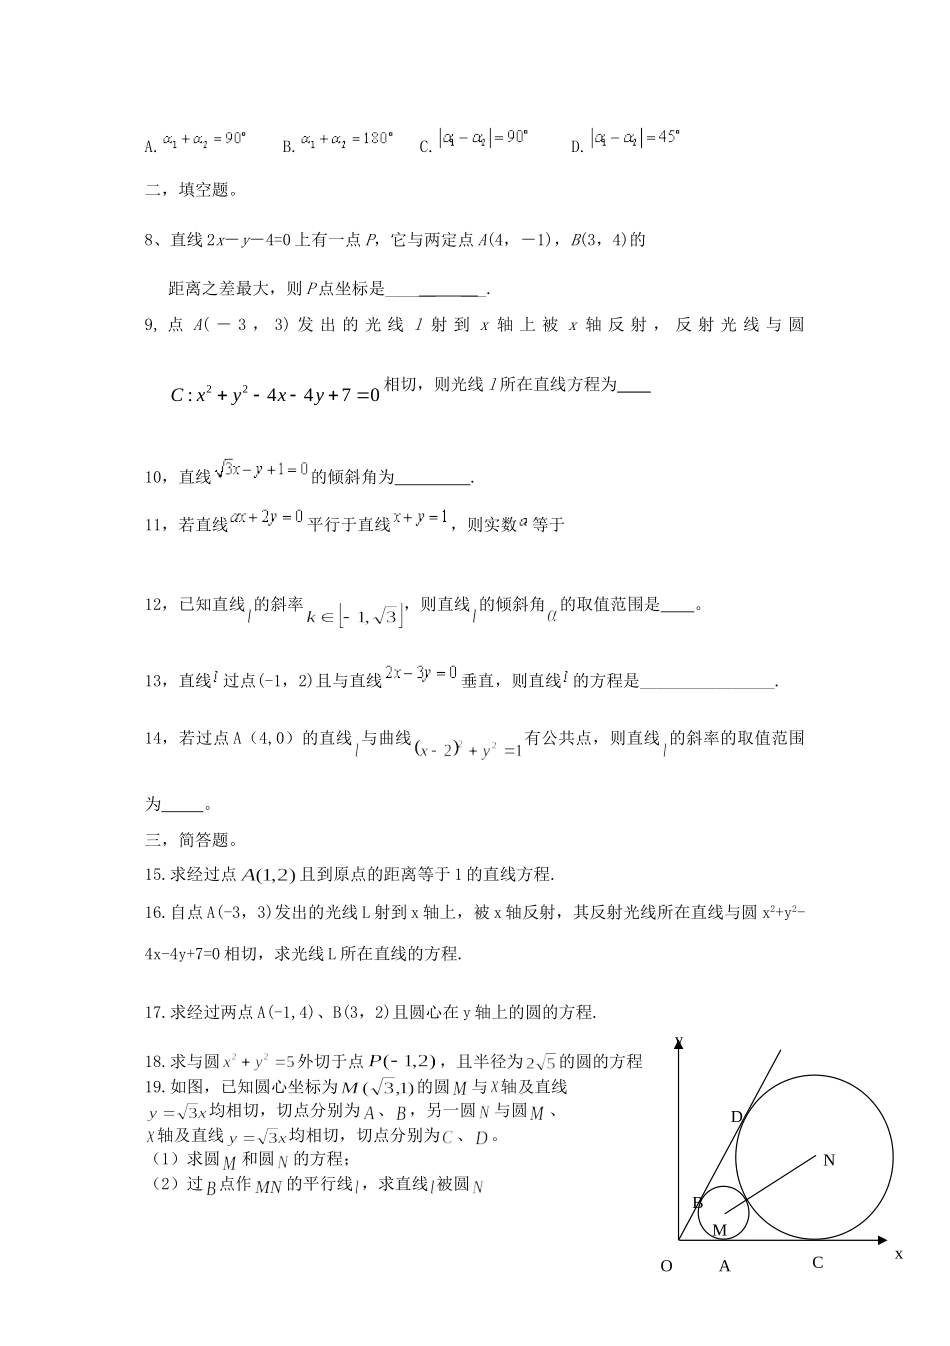 A. α₁+α₂=90° B. α₁+α₂=180° C. |α₁-α₂|=90° D. |α₁-α₂|=45°
二，填空题。
8、直线 2x－y－4=0 上有一点 P，它与两定点 A(4，－1)，B(3，4)的
距离之差最大，则 P 点坐标是____________.
9, 点 A(－3，3)发出的光线 l 射到 x 轴上被 x 轴反射，反射光线与圆
C:x²+y²-4x-4y+7=0 相切，则光线 l 所在直线方程为____
10，直线√3x-y+1=0 的倾斜角为_________.
11，若直线 ax+2y=0 平行于直线 x+y=1，则实数 a 等于
12，已知直线 l 的斜率 k∈[-1,√3]，则直线 l 的倾斜角 α 的取值范围是____。
13，直线 l 过点(-1，2)且与直线 2x-3y=0 垂直，则直线 l 的方程是________________.
14，若过点 A（4,0）的直线 l 与曲线 (x-2)²+y²=1 有公共点，则直线 l 的斜率的取值范围
为_____。
三，简答题。
15.求经过点 A(1,2) 且到原点的距离等于 1 的直线方程.
16.自点 A(-3，3)发出的光线 L 射到 x 轴上，被 x 轴反射，其反射光线所在直线与圆 x²+y²-
4x-4y+7=0 相切，求光线 L 所在直线的方程.
17.求经过两点 A(-1,4)、B(3，2)且圆心在 y 轴上的圆的方程.
18.求与圆 x²+y²=5 外切于点 P(-1,2)，且半径为 2√5 的圆的方程
19.如图，已知圆心坐标为 M(√3,1) 的圆 M 与 X 轴及直线
y=√3x 均相切，切点分别为 A、B，另一圆 N 与圆 M、
X 轴及直线 y=√3x 均相切，切点分别为 C、D。
（1）求圆 M 和圆 N 的方程；
（2）过 B 点作 MN 的平行线 l，求直线 l 被圆 N
y
D
N
B
M
x
O A C